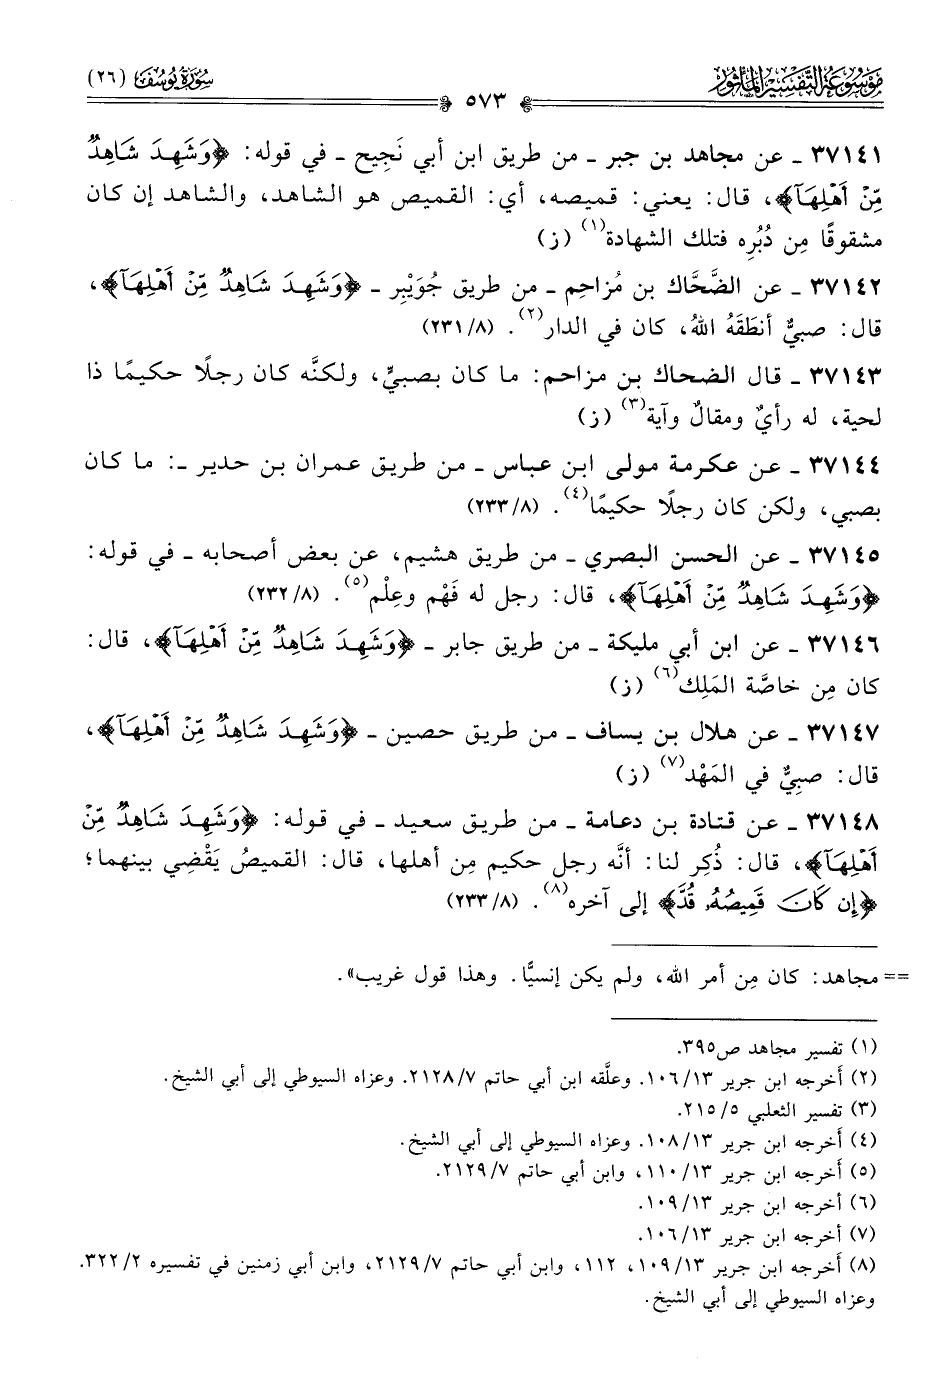 موسوعة التفسير المأثور
سورة يوسف (٢٦)
٥٧٣
٣٧١٤١ ـ عن مجاهد بن جبر ـ من طريق ابن أبي نَجِيح ـ في قوله: ﴿وَشَهِدَ شَاهِدٌ
مِّنْ أَهْلِهَآ﴾، قال: يعني: قميصه، أي: القميص هو الشاهد، والشاهد إن كان
مشقوقًا مِن دُبُرِه فتلك الشهادة(١) (ز)
٣٧١٤٢ ـ عن الضَّحَّاك بن مُزاحِم ـ من طريق جُوَيْبِر ـ ﴿وَشَهِدَ شَاهِدٌ مِّنْ أَهْلِهَآ﴾،
قال: صبيٌّ أنطَقَهُ اللهُ، كان في الدار(٢). (٢٣١/٨)
٣٧١٤٣ ـ قال الضحاك بن مزاحم: ما كان بصبيٍّ، ولكنَّه كان رجلًا حكيمًا ذا
لحية، له رأيٌ ومقالٌ وآية(٣) (ز)
٣٧١٤٤ ـ عن عكرمة مولى ابن عباس ـ من طريق عمران بن حدير ـ: ما كان
بصبي، ولكن كان رجلًا حكيمًا(٤). (٢٣٣/٨)
٣٧١٤٥ ـ عن الحسن البصري ـ من طريق هشيم، عن بعض أصحابه ـ في قوله:
﴿وَشَهِدَ شَاهِدٌ مِّنْ أَهْلِهَآ﴾، قال: رجل له فَهْم وعِلْم(٥). (٢٣٢/٨)
٣٧١٤٦ ـ عن ابن أبي مليكة ـ من طريق جابر ـ ﴿وَشَهِدَ شَاهِدٌ مِّنْ أَهْلِهَآ﴾، قال:
كان مِن خاصَّة المَلِك(٦) (ز)
٣٧١٤٧ ـ عن هلال بن يساف ـ من طريق حصين ـ ﴿وَشَهِدَ شَاهِدٌ مِّنْ أَهْلِهَآ﴾،
قال: صبِيٌّ في المَهْد(٧) (ز)
٣٧١٤٨ ـ عن قتادة بن دعامة ـ من طريق سعيد ـ في قوله: ﴿وَشَهِدَ شَاهِدٌ مِّنْ
أَهْلِهَآ﴾، قال: ذُكِر لنا: أنَّه رجل حكيم مِن أهلها، قال: القميصُ يَقْضِي بينهما؛
﴿إِن كَانَ قَمِيصُهُۥ قُدَّ﴾ إلى آخره(٨). (٢٣٣/٨)
== مجاهد: كان مِن أمر الله، ولم يكن إنسيًّا. وهذا قول غريب».
(١) تفسير مجاهد ص٣٩٥.
(٢) أخرجه ابن جرير ١٠٦/١٣. وعلَّقه ابن أبي حاتم ٢١٢٨/٧. وعزاه السيوطي إلى أبي الشيخ.
(٣) تفسير الثعلبي ٢١٥/٥.
(٤) أخرجه ابن جرير ١٠٨/١٣. وعزاه السيوطي إلى أبي الشيخ.
(٥) أخرجه ابن جرير ١١٠/١٣، وابن أبي حاتم ٢١٢٩/٧.
(٦) أخرجه ابن جرير ١٠٩/١٣.
(٧) أخرجه ابن جرير ١٠٦/١٣.
(٨) أخرجه ابن جرير ١٠٩/١٣، ١١٢، وابن أبي حاتم ٢١٢٩/٧، وابن أبي زمنين في تفسيره ٣٢٢/٢.
وعزاه السيوطي إلى أبي الشيخ.